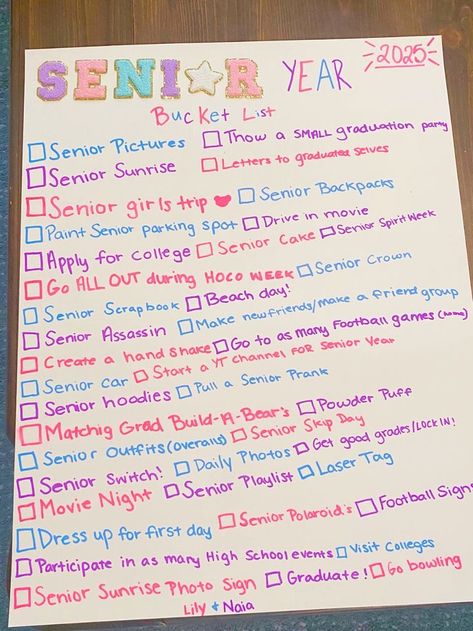 SENIOR YEAR 2025
Bucket List
Senior Pictures Thow a SMALL graduation party
Senior Sunrise Letters to graduated selves
Senior girls trip Senior Backpacks
Paint Senior parking spot Drive in movie
Apply for college Senior Cake Senior Spirit Week
Go ALL OUT during HOCO WEEK Senior Crown
Senior Scrapbook Beach day!
Senior Assassin Make new friends/make a friend group
Create a hand shake Go to as many Football games (home)
Senior car Start a YT Channel FOR Senior Year
Senior hoodies Pull a Senior Prank
Matchig Grad Build-A-Bear's Powder Puff
Senior Outfits (overalls) Senior Skip Day
Senior Switch! Daily Photos Get good grades/LOCK IN!
Movie Night Senior Playlist Laser Tag
Dress up for first day Senior Polaroid's Football Sign
Participate in as many High School events Visit Colleges
Senior Sunrise Photo Sign Graduate! Go bowling
Lily & Naia